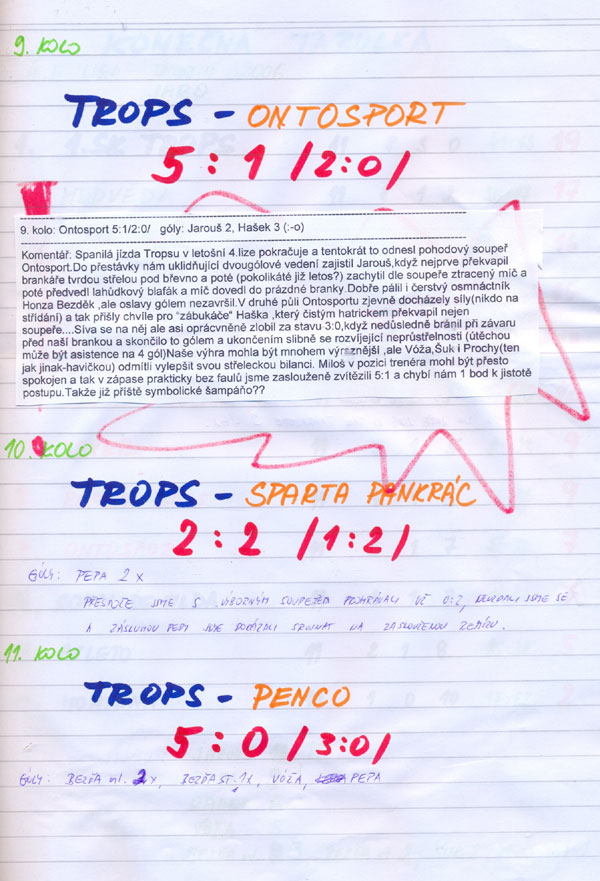 9. KOLO
TROPS - ONTOSPORT
5:1 /2:0/
9. kolo: Ontosport 5:1/2:0/ góly: Jarouš 2, Hašek 3 (:-o)
Komentář: Spanilá jízda Tropsu v letošní 4.lize pokračuje a tentokrát to odnesl pohodový soupeř
Ontosport.Do přestávky nám uklidňující dvougólové vedení zajistil Jarouš,když nejprve překvapil
brankáře tvrdou střelou pod břevno a poté (pokolikáté již letos?) zachytil dle soupeře ztracený míč a
poté předvedl lahůdkový blafák a míč dovedl do prázdné branky.Dobře pálil i čerstvý osmnáctník
Honza Bezděk ,ale oslavy gólem nezavršil.V druhé půli Ontosportu zjevně docházely síly(nikdo na
střídání) a tak přišly chvíle pro "zábukáče" Haška ,který čistým hatrickem překvapil nejen
soupeře....Siva se na něj ale asi oprácvněně zlobil za stavu 3:0,když nedůsledně bránil při závaru
před naší brankou a skončilo to gólem a ukončením slibně se rozvíjející neprůstřelnosti (útěchou
může být asistence na 4 gól)Naše výhra mohla být mnohem výraznější ,ale Vóža,Šuk i Prochy(ten
jak jinak-havičkou) odmítli vylepšit svou střeleckou bilanci. Miloš v pozici trenéra mohl být přesto
spokojen a tak v zápase prakticky bez faulů jsme zaslouženě zvítězili 5:1 a chybí nám 1 bod k jistotě
postupu.Takže již příště symbolické šampáňo??
10. KOLO
TROPS - SPARTA PANKRÁC
2:2 /1:2/
GÓLY: PEPA 2x
PŘESTOŽE JSME S VÝBORNÝM SOUPEŘEM PROHRÁVALI UŽ 0:2, NEVZDALI JSME SE
A ZÁSLUHOU PEPY JSME DOKÁZALI SROVNAT NA ZASLOUŽENOU REMÍZU.
11. KOLO
TROPS - PENCO
5:0 /3:0/
GÓLY: BEZĎA ml. 2x, BEZĎA ST. 1x, VÓŽA, PEPA